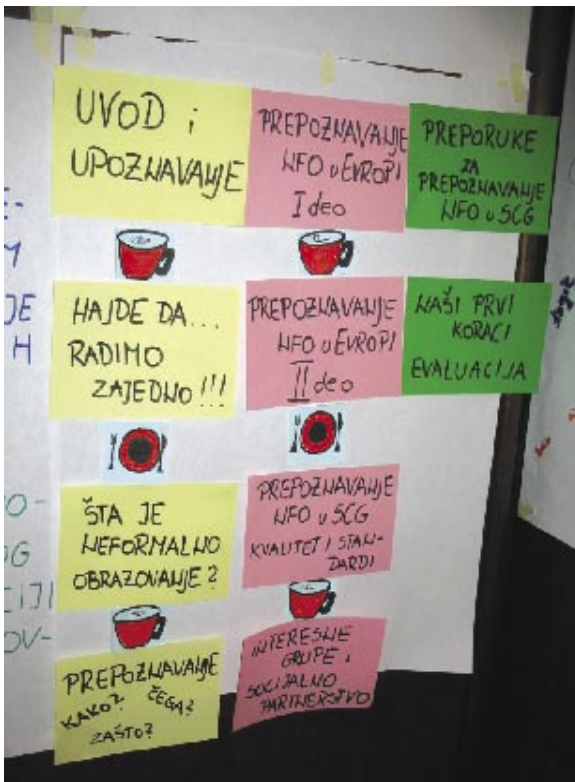 UVOD i
UPOZNAVANJE
HAJDE DA...
RADIMO
ZAJEDNO!!!
ŠTA JE
NEFORMALNO
OBRAZOVANJE?
PREPOZNAVANJE
KAKO? ČEGA?
ZAŠTO?
PREPOZNAVANJE
NFO u EVROPI
I deo
PREPOZNAVANJE
NFO u EVROPI
II deo
PREPOZNAVANJE
NFO u SCG
KVALITET I STAN-
DARDI
INTERESNE
GRUPE i
SOCIJALNO
PARTNERSTVO
PREPORUKE
ZA
PREPOZNAVANJE
NFO u SCG
NAŠI PRVI
KORACI
EVALUACIJA